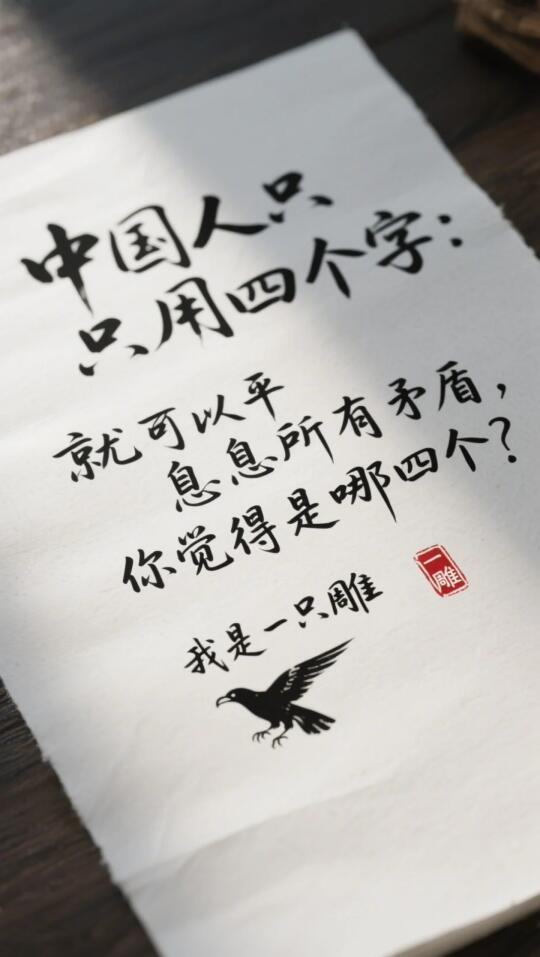 中国人只
只用四个字：
就可以平
息息所有矛盾，
你觉得是哪四个？
一雕
我是一只雕